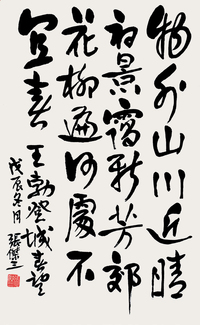 物外山川近晴
初景靄新芳郊
花柳遍何處不
宜春 王勃登城春望
戊辰冬月 張傑